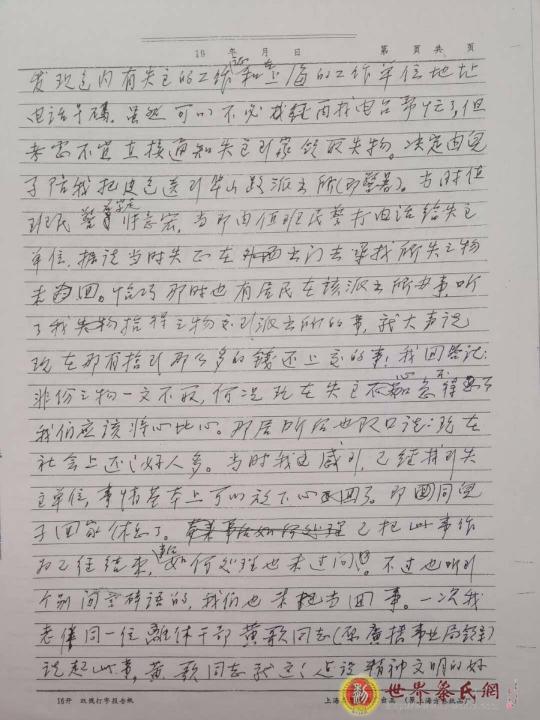 19 年 月 日 第 页共 页
发现包内有失主的工作证和在上海的工作单位地址
电话号码。虽然可以不必找到电台帮忙了，但
考虑不宜直接通知失主到家领取失物。决定由儿
子陪我把皮包送到华山路派出所(即警署)。当时值
班民警 当即由值班民警打电话给失主
单位，据说当时失主正在外出门去寻找所失之物
未回。恰巧那时也有居民在该派出所办事，听
了我拾得之物交到派出所的事，就大声说
现在那有拾到那么多的錢还上交的事！我回答说：
非份之物一文不取，何况现在失主心急得不了
我们应该将心比心。那居民听后也改口说：现在
社会上还是好人多。当时我也感到，已经找到失
主单位，事情基本上可以放下心回了。即同儿
子回家休息了。 已把此事作
为已经结束，事后如何处理也未过问。不过也听到
个别闲言碎语的，我们也未把当回事。一次我
老伴同一位離休干部黄歌同志(原廣播事业局領导)
谈起此事，黄歌同志就这是建设精神文明的好
16开 双线打字报告纸
世界蔡氏網